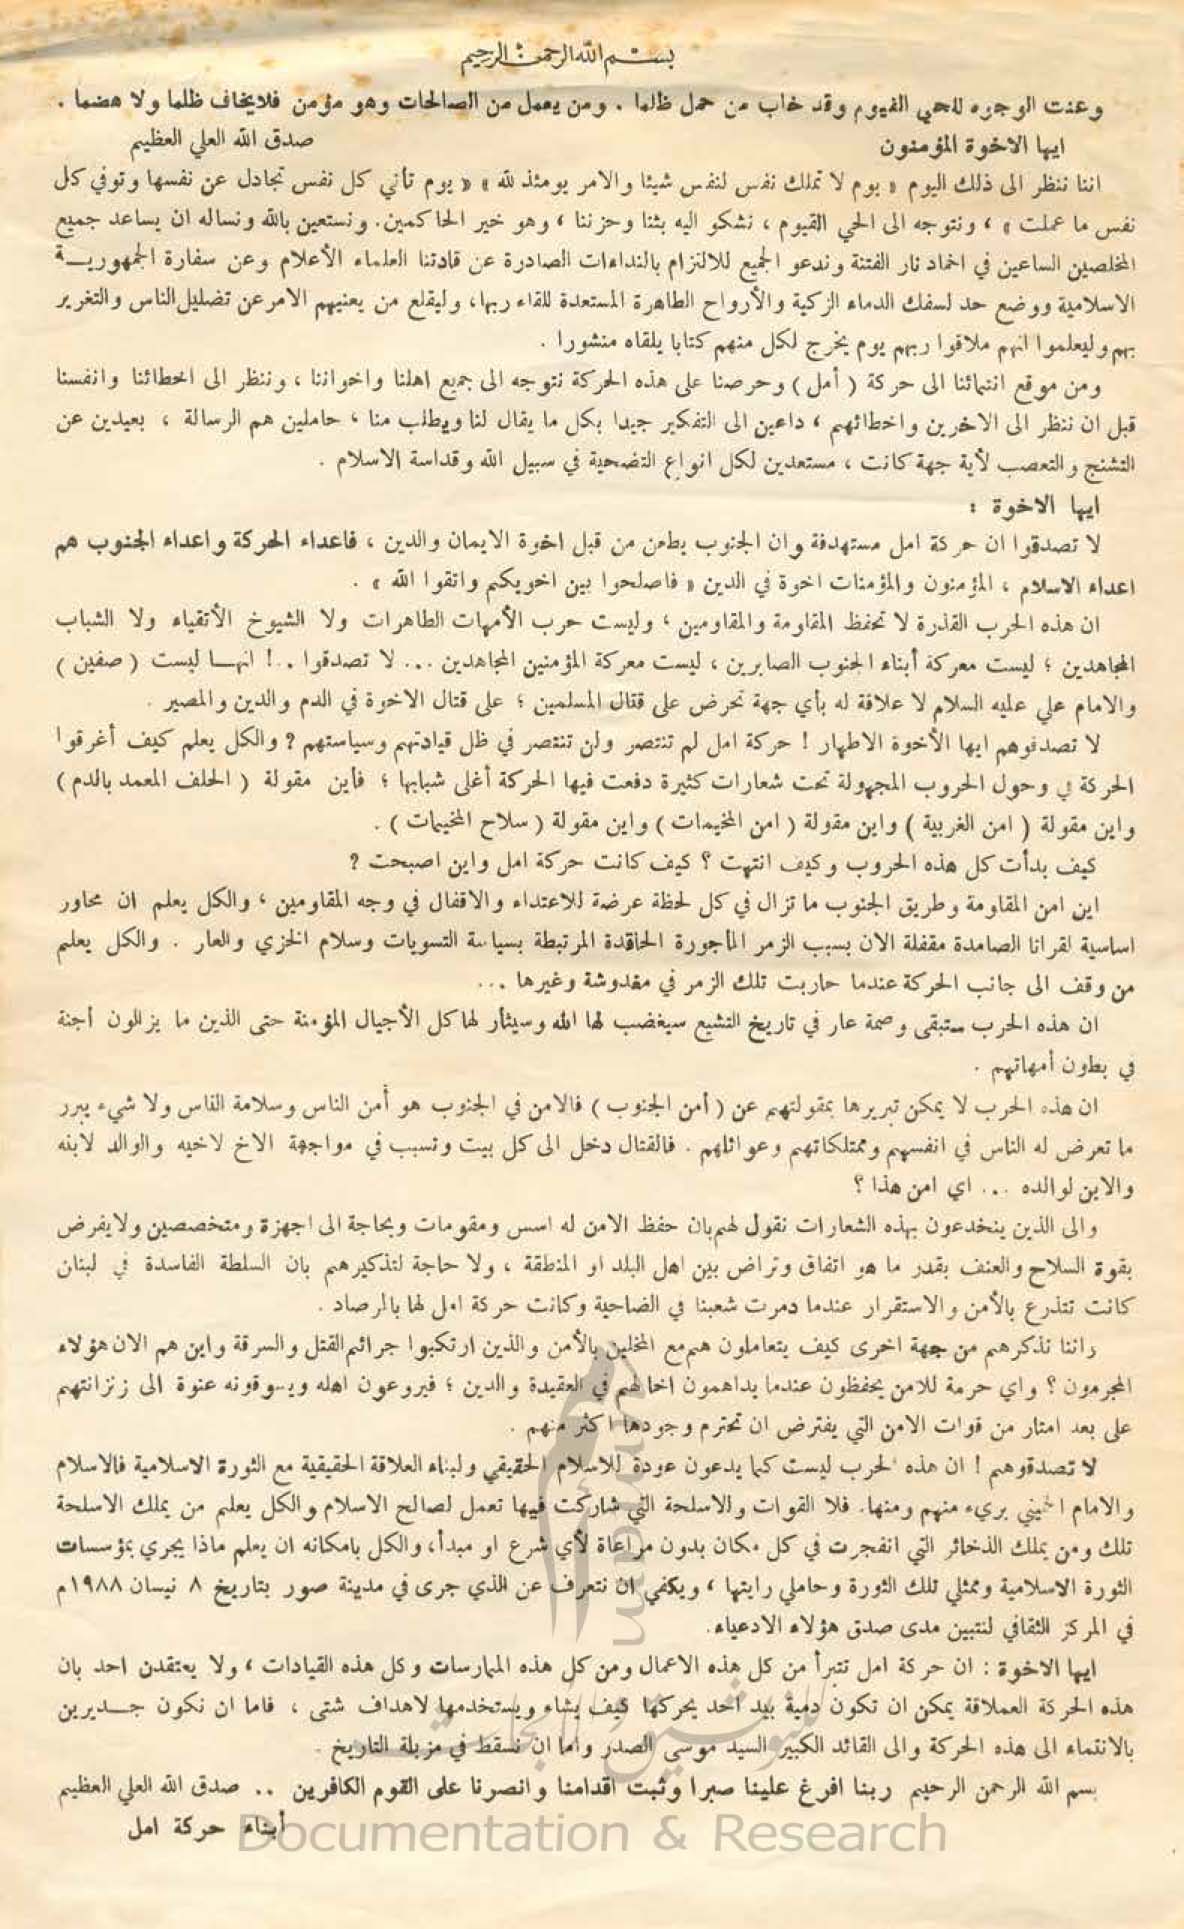 بسم الله الرحمن الرحيم
وعنت الوجوه للحي القيوم وقد خاب من حمل ظلما . ومن يعمل من الصالحات وهو مؤمن فلا يخاف ظلما ولا هضما .
صدق الله العلي العظيم
ايها الاخوة المؤمنون
اننا ننظر الى ذلك اليوم « يوم لا تملك نفس لنفس شيئا والامر يومئذ لله » « يوم تأتي كل نفس تجادل عن نفسها وتوفي كل
نفس ما عملت » ، ونتوجه الى الحي القيوم ، نشكو اليه بثنا وحزننا ، وهو خير الحاكمين. ونستعين بالله ونساله ان يساعد جميع
المخلصين الساعين في اخماد نار الفتنة وندعو الجميع للالتزام بالنداءات الصادرة عن قادتنا العلماء الأعلام وعن سفارة الجمهوريـة
الاسلامية ووضع حد لسفك الدماء الزكية والأرواح الطاهرة المستعدة للقاء ربها، وليقلع من يعنيهم الامر عن تضليل الناس والتغرير
بهم وليعلموا انهم ملاقوا ربهم يوم يخرج لكل منهم كتابا يلقاه منشورا .
ومن موقع انتمائنا الى حركة ( أمل ) وحرصنا على هذه الحركة نتوجه الى جميع اهلنا واخواننا ، وننظر الى اخطائنا وانفسنا
قبل ان ننظر الى الاخرين واخطائهم ، داعين الى التفكير جيدا بكل ما يقال لنا ويطلب منا ، حاملين هم الرسالة ، بعيدين عن
التشنج والتعصب لأية جهة كانت ، مستعدين لكل انواع التضحية في سبيل الله وقداسة الاسلام .
ايها الاخوة :
لا تصدقوا ان حركة امل مستهدفة وان الجنوب يطعن من قبل اخوة الايمان والدين ، فاعداء الحركة واعداء الجنوب هم
اعداء الاسلام ، المؤمنون والمؤمنات اخوة في الدين « فاصلحوا بين اخويكم واتقوا الله » .
ان هذه الحرب القذرة لا تحفظ المقاومة والمقاومين ، وليست حرب الأمهات الطاهرات ولا الشيوخ الأتقياء ولا الشباب
المجاهدين ؛ ليست معركة أبناء الجنوب الصابرين ، ليست معركة المؤمنين المجاهدين ... لا تصدقوا ..! انهـا ليست ( صفين )
والامام علي عليه السلام لا علاقة له بأي جهة تحرض على قتال المسلمين ؛ على قتال الاخوة في الدم والدين والمصير .
لا تصدقوهم ايها الأخوة الاطهار ! حركة امل لم تنتصر ولن تنتصر في ظل قيادتهم وسياستهم ? والكل يعلم كيف أغرقوا
الحركة في وحول الحروب المجهولة تحت شعارات كثيرة دفعت فيها الحركة أغلى شبابها ؛ فأين مقولة ( الحلف المعمد بالدم )
واين مقولة ( امن الغربية ) واين مقولة ( امن المخيمات ) واين مقولة ( سلاح المخيمات ) .
كيف بدأت كل هذه الحروب وكيف انتهت ؟ كيف كانت حركة امل واين اصبحت ?
اين امن المقاومة وطريق الجنوب ما تزال في كل لحظة عرضة للاعتداء والاقفال في وجه المقاومين ، والكل يعلم ان محاور
اساسية لقرانا الصامدة مقفلة الان بسبب الزمر المأجورة الحاقدة المرتبطة بسياسة التسويات وسلام الخزي والعار . والكل يعلم
من وقف الى جانب الحركة عندما حاربت تلك الزمر في مغدوشة وغيرها ...
ان هذه الحرب ستبقى وصمة عار في تاريخ التشيع سيغضب لها الله وسيثأر لها كل الأجيال المؤمنة حتى الذين ما يزالون أجنة
في بطون أمهاتهم .
ان هذه الحرب لا يمكن تبريرها بمقولتهم عن ( أمن الجنوب ) فالامن في الجنوب هو أمن الناس وسلامة الناس ولا شيء يبرر
ما تعرض له الناس في انفسهم وممتلكاتهم وعوائلهم . فالقتال دخل الى كل بيت وتسبب في مواجهة الاخ لاخيه والوالد لابنه
والابن لوالده ... اي امن هذا ؟
والى الذين ينخدعون بهذه الشعارات نقول لهم بان حفظ الامن له اسس ومقومات وبحاجة الى اجهزة ومتخصصين ولا يفرض
بقوة السلاح والعنف بقدر ما هو اتفاق وتراض بين اهل البلد او المنطقة ، ولا حاجة لتذكيرهم بان السلطة الفاسدة في لبنان
كانت تتذرع بالأمن والاستقرار عندما دمرت شعبنا في الضاحية وكانت حركة امل لها بالمرصاد .
واننا نذكرهم من جهة اخرى كيف يتعاملون هم مع المخلين بالأمن والذين ارتكبوا جرائم القتل والسرقة واين هم الان هؤلاء
المجرمون ؟ واي حرمة للامن يحفظون عندما يداهمون اخا لهم في العقيدة والدين ؛ فيروعون اهله ويسوقونه عنوة الى زنزانتهم
على بعد امتار من قوات الامن التي يفترض ان تحترم وجودها اكثر منهم .
لا تصدقوهم ! ان هذه الحرب ليست كما يدعون عودة للاسلام الحقيقي ولبناء العلاقة الحقيقية مع الثورة الاسلامية فالاسلام
والامام الخميني بريء منهم ومنها. فلا القوات والاسلحة التي شاركت فيها تعمل لصالح الاسلام والكل يعلم من يملك الاسلحة
تلك ومن يملك الذخائر التي انفجرت في كل مكان بدون مراعاة لأي شرع او مبدأ، والكل بامكانه ان يعلم ماذا يجري بمؤسسات
الثورة الاسلامية وممثلي تلك الثورة وحاملي رايتها ، ويكفي ان نتعرف عن الذي جرى في مدينة صور بتاريخ ٨ نيسان ١٩٨٨م
في المركز الثقافي لنتبين مدى صدق هؤلاء الادعياء.
ايها الاخوة : ان حركة امل تتبرأ من كل هذه الاعمال ومن كل هذه الممارسات وكل هذه القيادات ، ولا يعتقدن احد بان
هذه الحركة العملاقة يمكن ان تكون دمية بيد احد يحركها كيف يشاء ويستخدمها لاهداف شتى ، فاما ان نكون جـديرين
بالانتماء الى هذه الحركة والى القائد الكبير السيد موسى الصدر واما ان نسقط في مزبلة التاريخ .
بسم الله الرحمن الرحيم ربنا افرغ علينا صبرا وثبت اقدامنا وانصرنا على القوم الكافرين .. صدق الله العلي العظيم
أبناء حركة امل
umam
للتوثيق والأبحاث
Documentation & Research